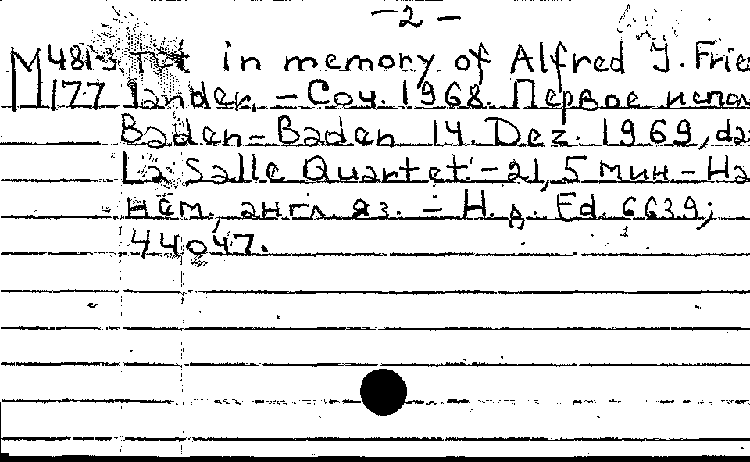 - 2 -
М 48 tet in memory of Alfred J. Frie
177 lander. - Соч. 1968. Первое испо
Baden-Baden 14. Dez. 1969, da
La Salle Quartet - 21,5 мин - На
нем., англ. яз. - Н.д. Ed. 6639;
44047.